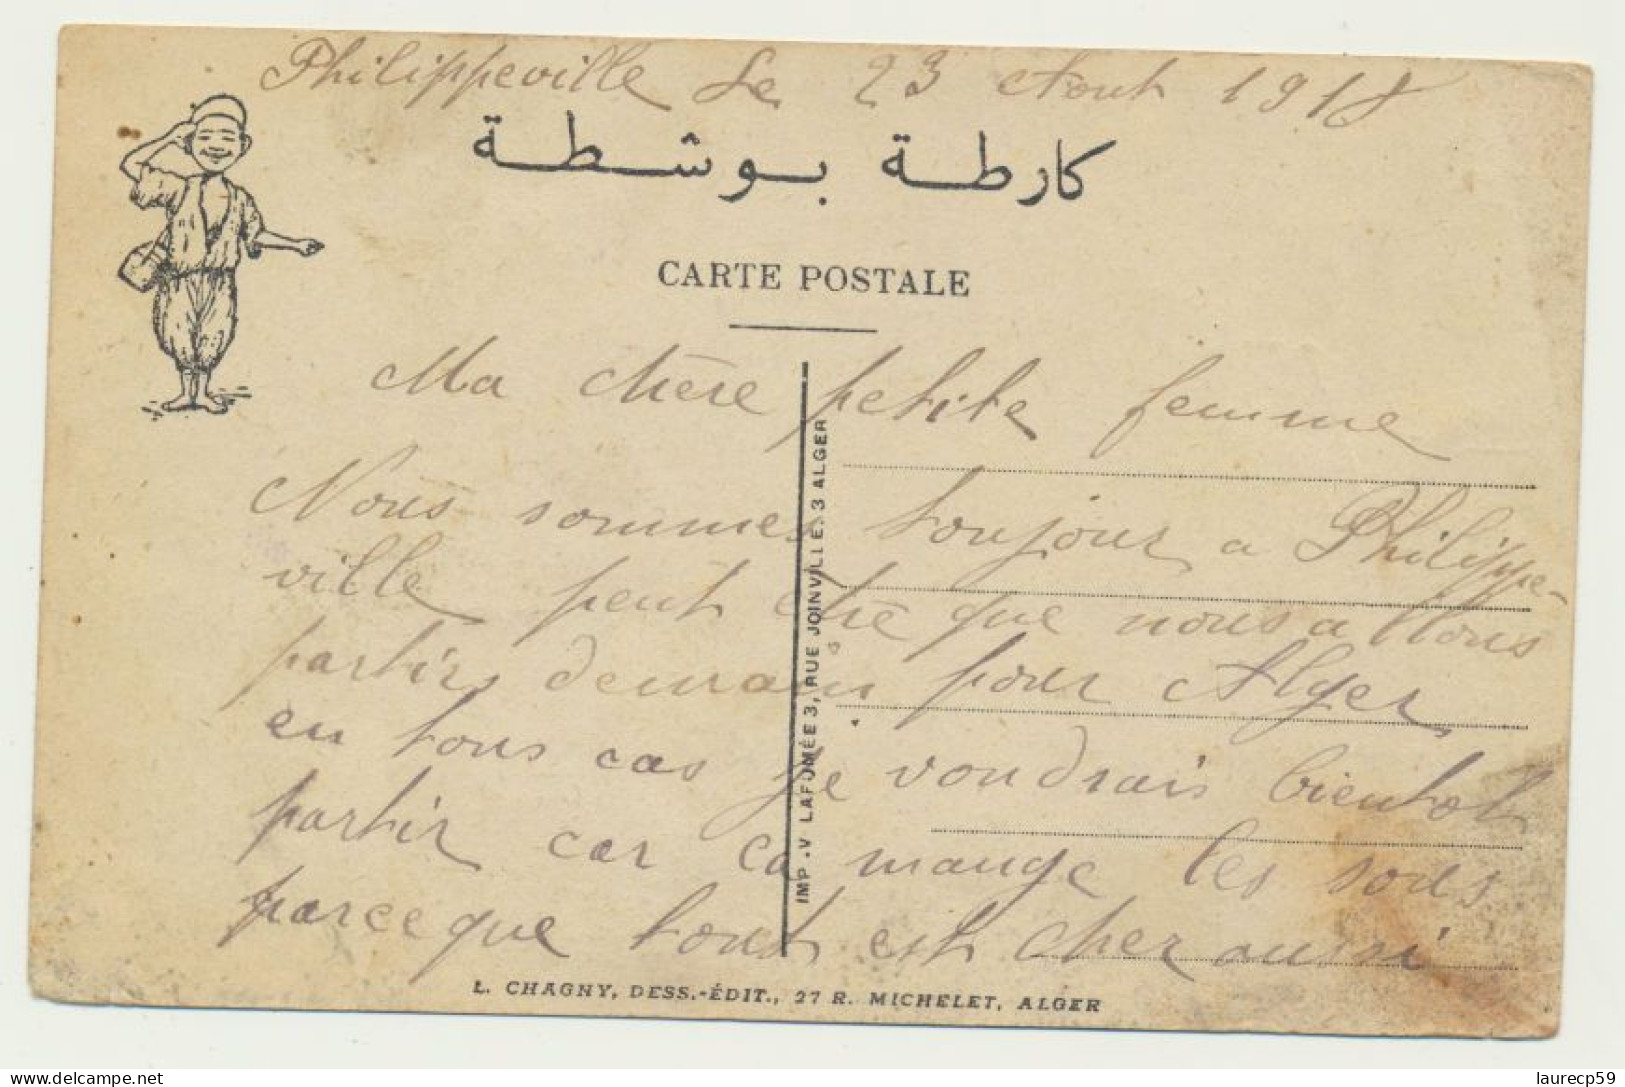 Philippeville Le 23 Aout 1918
كارطة بوشطة
CARTE POSTALE
Ma chère petite femme
Nous sommes toujour a Philippe-
ville peut être que nous allons
partir demain pour Alger
en tous cas je voudrais bientot
partir car ca mange les sous
parceque tout est cher aussi
IMP. V LAFUMÉE 3, RUE JOINVILLE. 3 ALGER
L. CHAGNY, DESS.-ÉDIT., 27 R. MICHELET, ALGER
laurecp59